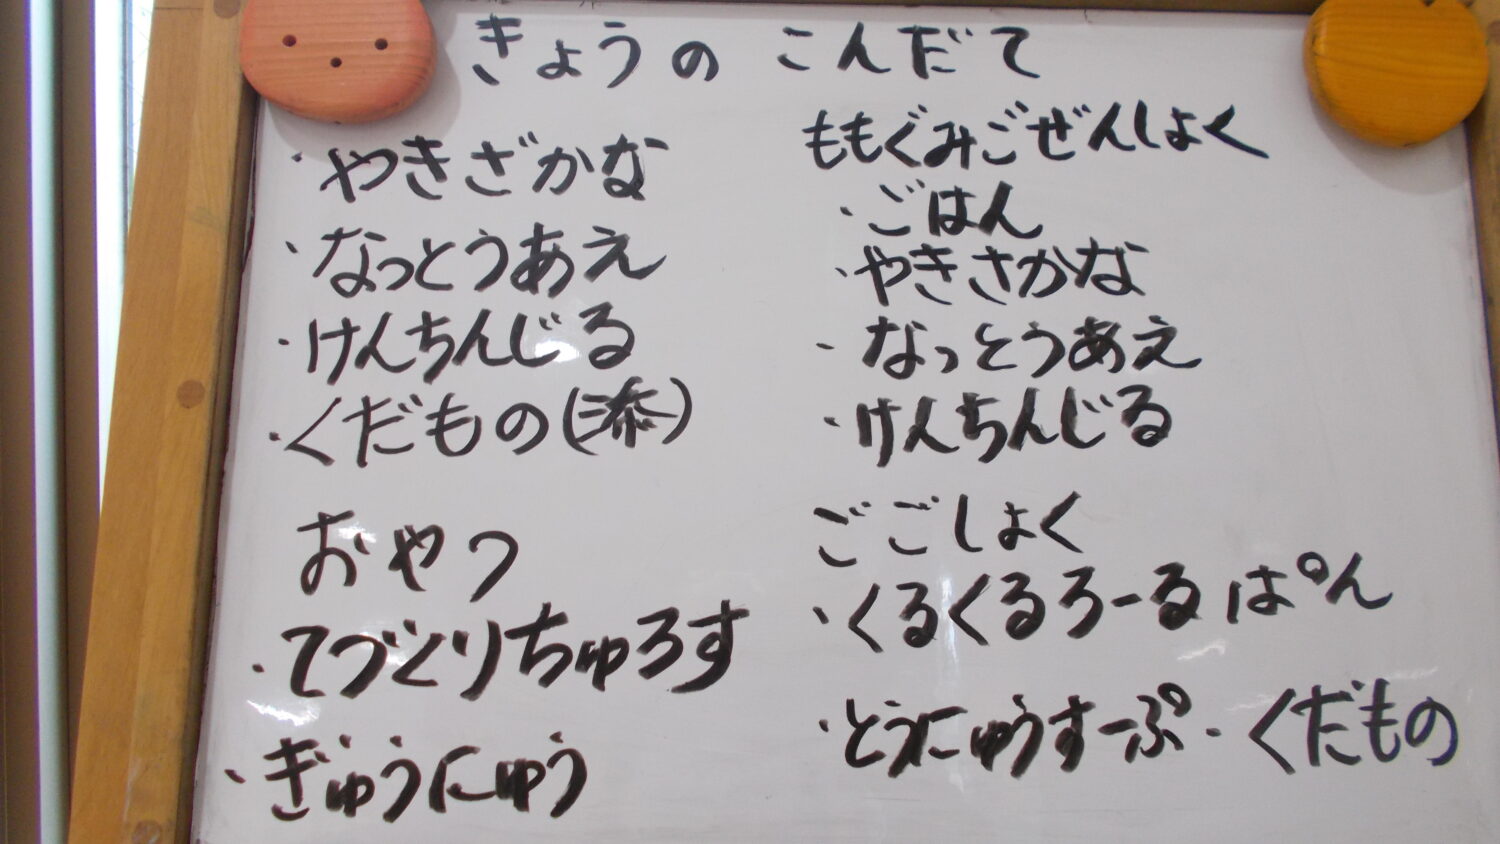 きょうの こんだて
・やきざかな
・なっとうあえ
・けんちんじる
・くだもの(添)
おやつ
・てづくりちゅろす
・ぎゅうにゅう
ももぐみごぜんしょく
・ごはん
・やきさかな
・なっとうあえ
・けんちんじる
ごごしょく
・くるくるろーるぱん
・とうにゅうすーぷ・くだもの